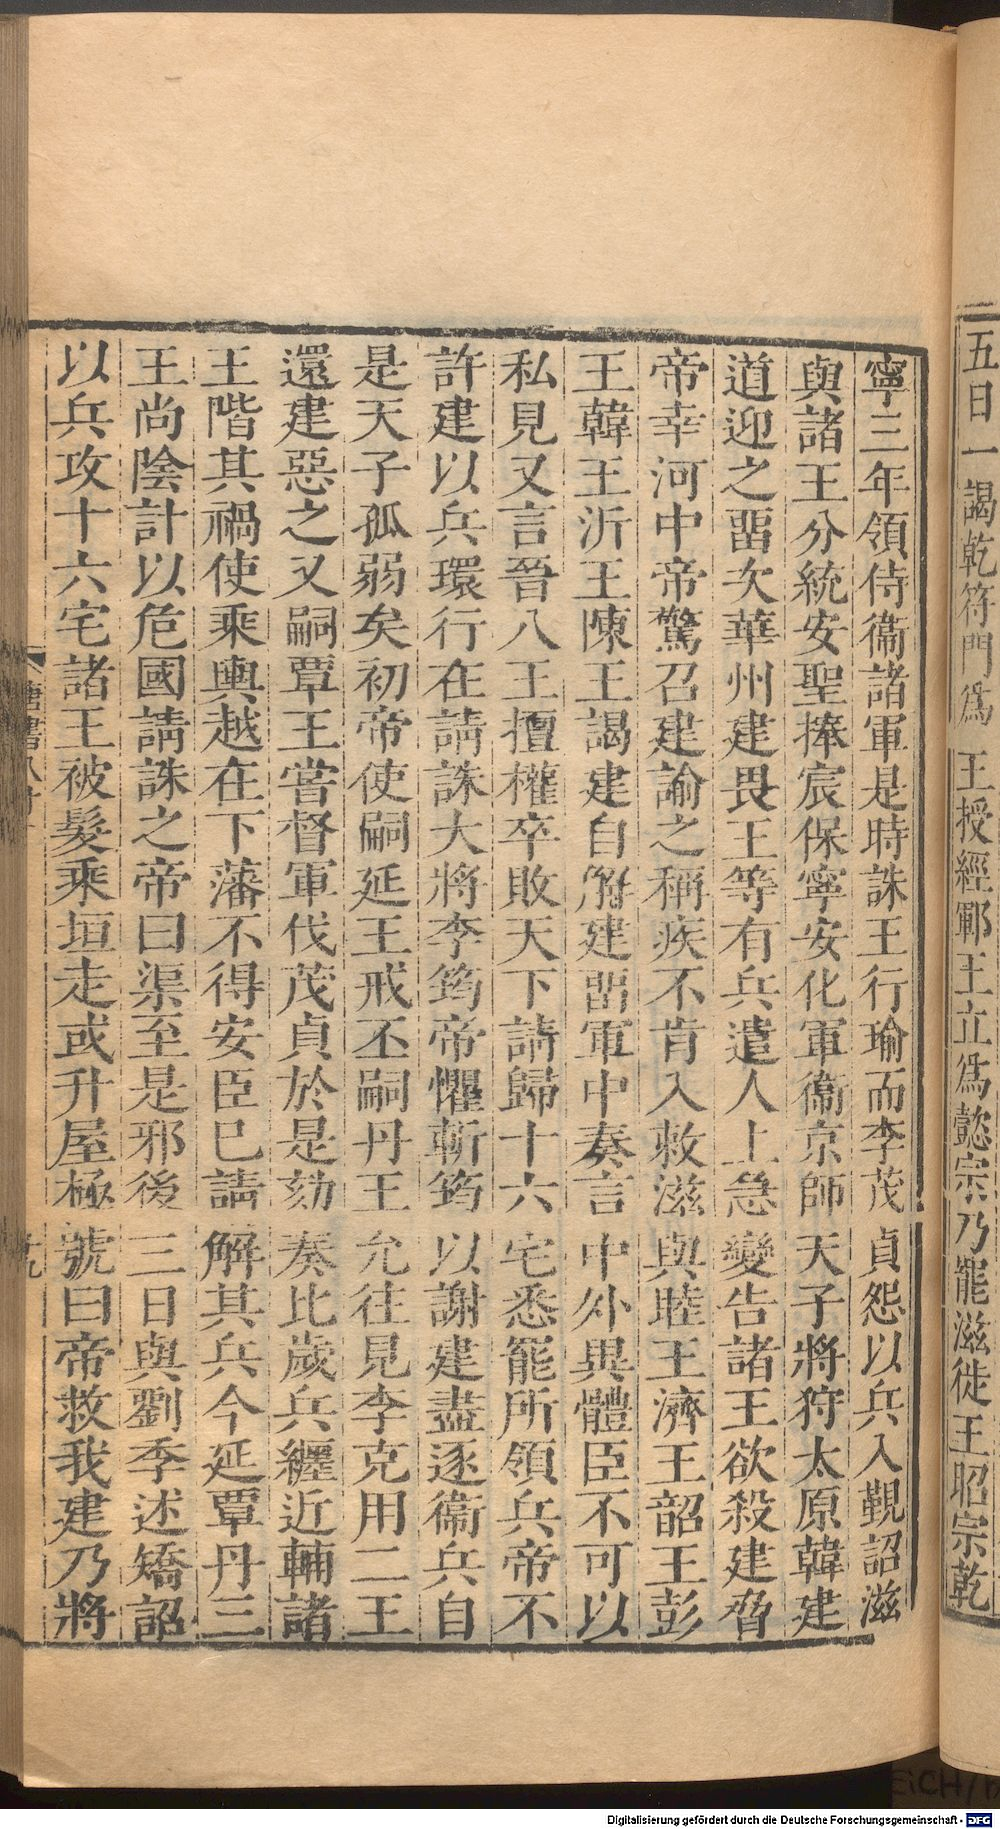 五日一謁乾符門爲王授經鄆王立爲懿宗乃罷滋徙王昭宗乾
寧三年領侍衞諸軍是時誅王行瑜而李茂貞怨以兵入覲詔滋
與諸王分統安聖捧宸保寧安化軍衞京師天子將狩太原韓建
道迎之畱次華州建畏王等有兵遣人上急變告諸王欲殺建脅
帝幸河中帝驚召建諭之稱疾不肯入敕滋與睦王濟王韶王彭
王韓王沂王陳王謁建自解建畱軍中奏言中外異體臣不可以
私見又言晉八王擅權卒敗天下請歸十六宅悉罷所領兵帝不
許建以兵環行在請誅大將李筠帝懼斬筠以謝建盡逐衞兵自
是天子孤弱矣初帝使嗣延王戒丕嗣丹王允往見李克用二王
還建惡之又嗣覃王嘗督軍伐茂貞於是劾奏比歲兵纏近輔諸
王階其禍使乘輿越在下藩不得安臣巳請解其兵今延覃丹三
王尚陰計以危國請誅之帝曰渠至是邪後三日與劉季述矯詔
以兵攻十六宅諸王被髮乘垣走或升屋極號曰帝救我建乃將
唐書八十 九
Digitalisierung gefördert durch die Deutsche Forschungsgemeinschaft - DFG